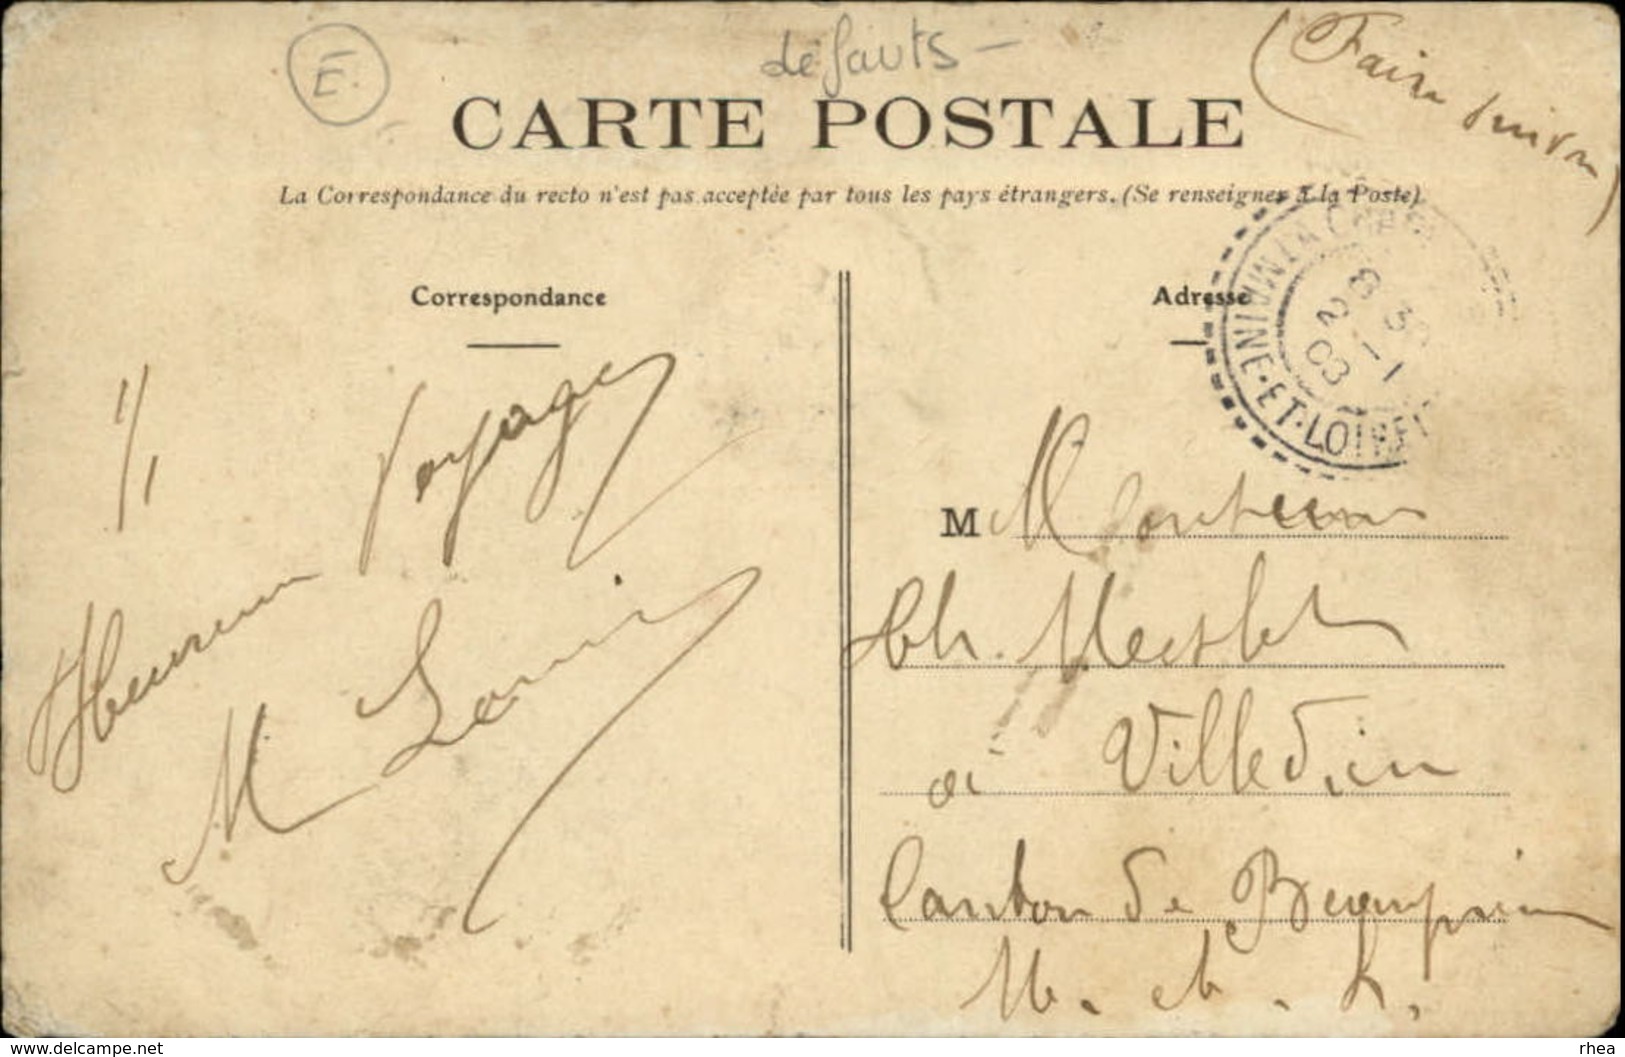 (Faire suivre)
E.
défauts -
CARTE POSTALE
La Correspondance du recto n'est pas acceptée par tous les pays étrangers. (Se renseigner à la Poste)
Correspondance
Adresse
NE·ET·LOIRE
8 3
2 - 1
03
1/1
Heureux voyage
M
M
Ch.
à Villedieu
Canton de Beaupréau
M. et L.
www.delcampe.net
rhea